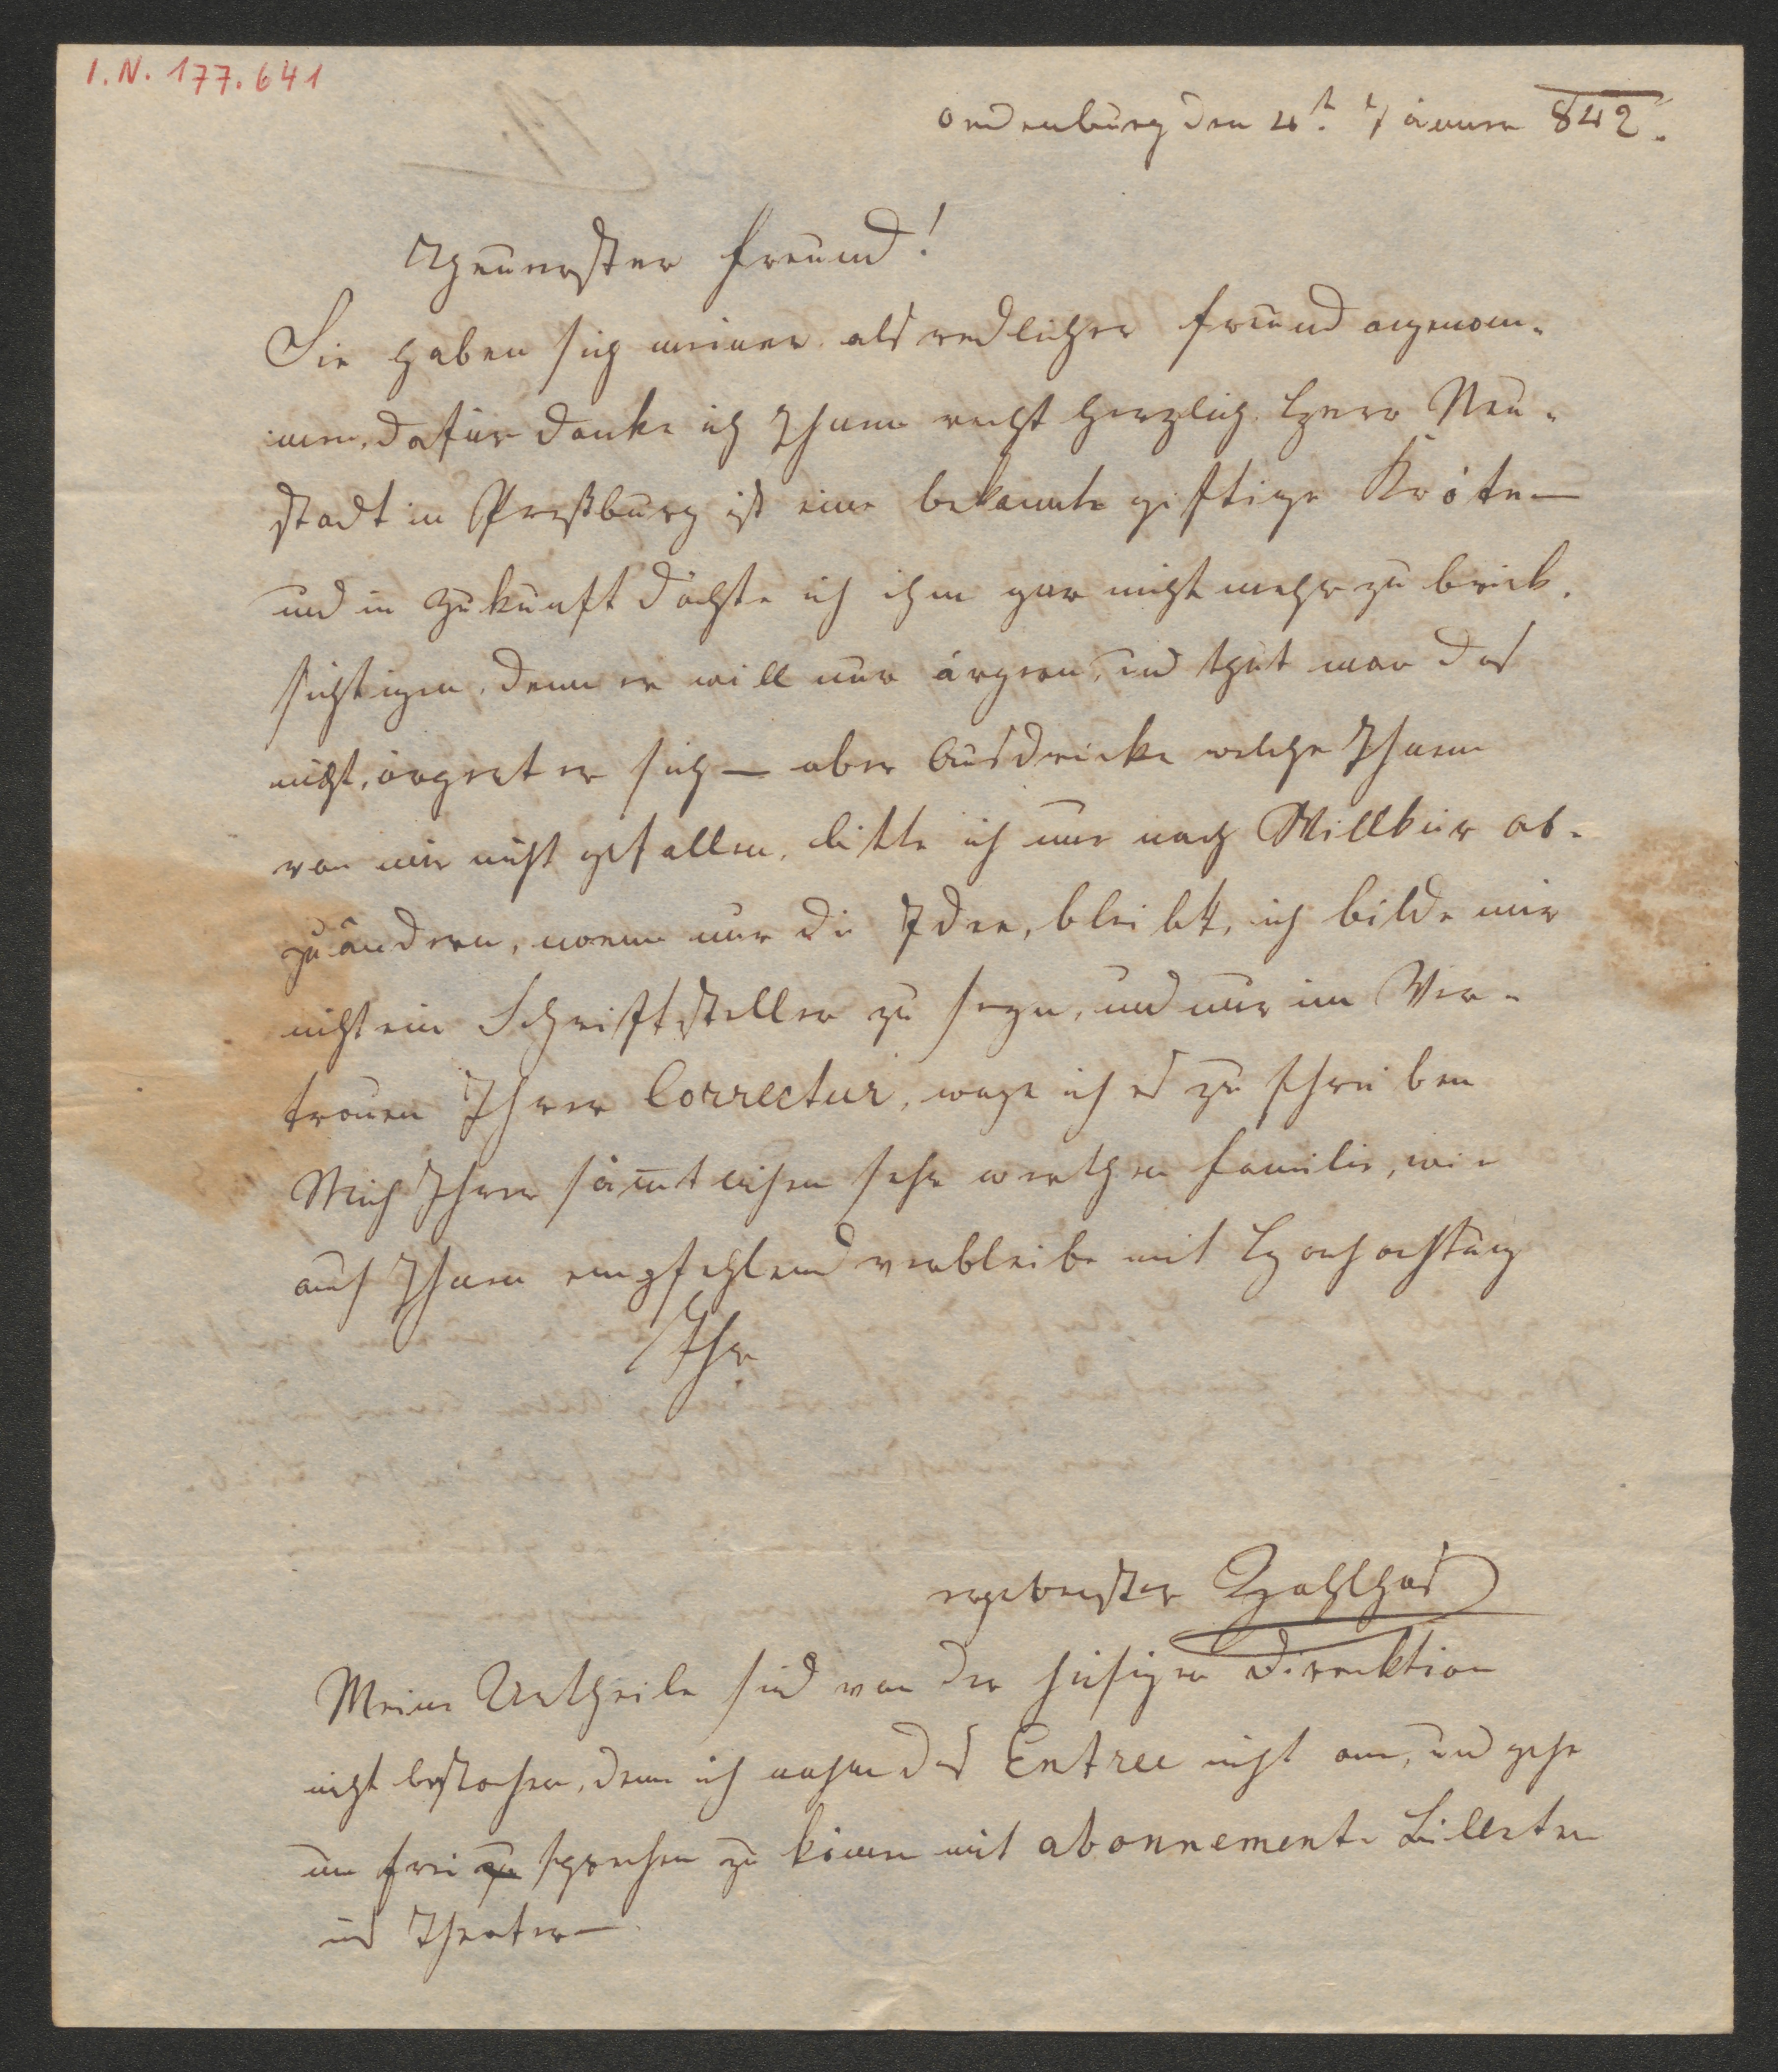 I.N. 177.641
Oedenburg den 4t. Jänner 842.
Theuerster Freund!
Sie haben sich meiner als redlicher Freund angenom-
men, dafür danke ich Ihnen recht herzlich. Herr Neu-
stadt in Preßburg ist eine bekannte giftige Kröte —
und in Zukunft dächte ich ihm gar nicht mehr zu berück-
sichtigen, denn er will nur ärgern, und thut man das
nicht, ärgert er sich — aber Ausdrücke welche Ihnen
von mir nicht gefallen, bitte ich nur nach Willkür ab-
zuändern, wenn nur die Idee, bleibt, ich bilde mir
nicht ein Schriftsteller zu seyn, und nur im Ver-
trauen Ihrer Correctur, wage ich es zu schreiben
Mich Ihrer sämtlichen sehr werthen Familie, wie
auch Ihnen empfehlend verbleibe mit Hochachtung
Ihr
ergebenster Zahlhas
Meine Urtheile sind von der hiesigen Direktion
nicht bestochen, denn ich nahm das Entree nicht an, und gehe
um frei zu sprechen zu können mit abonnements Billeten
ins Theater —